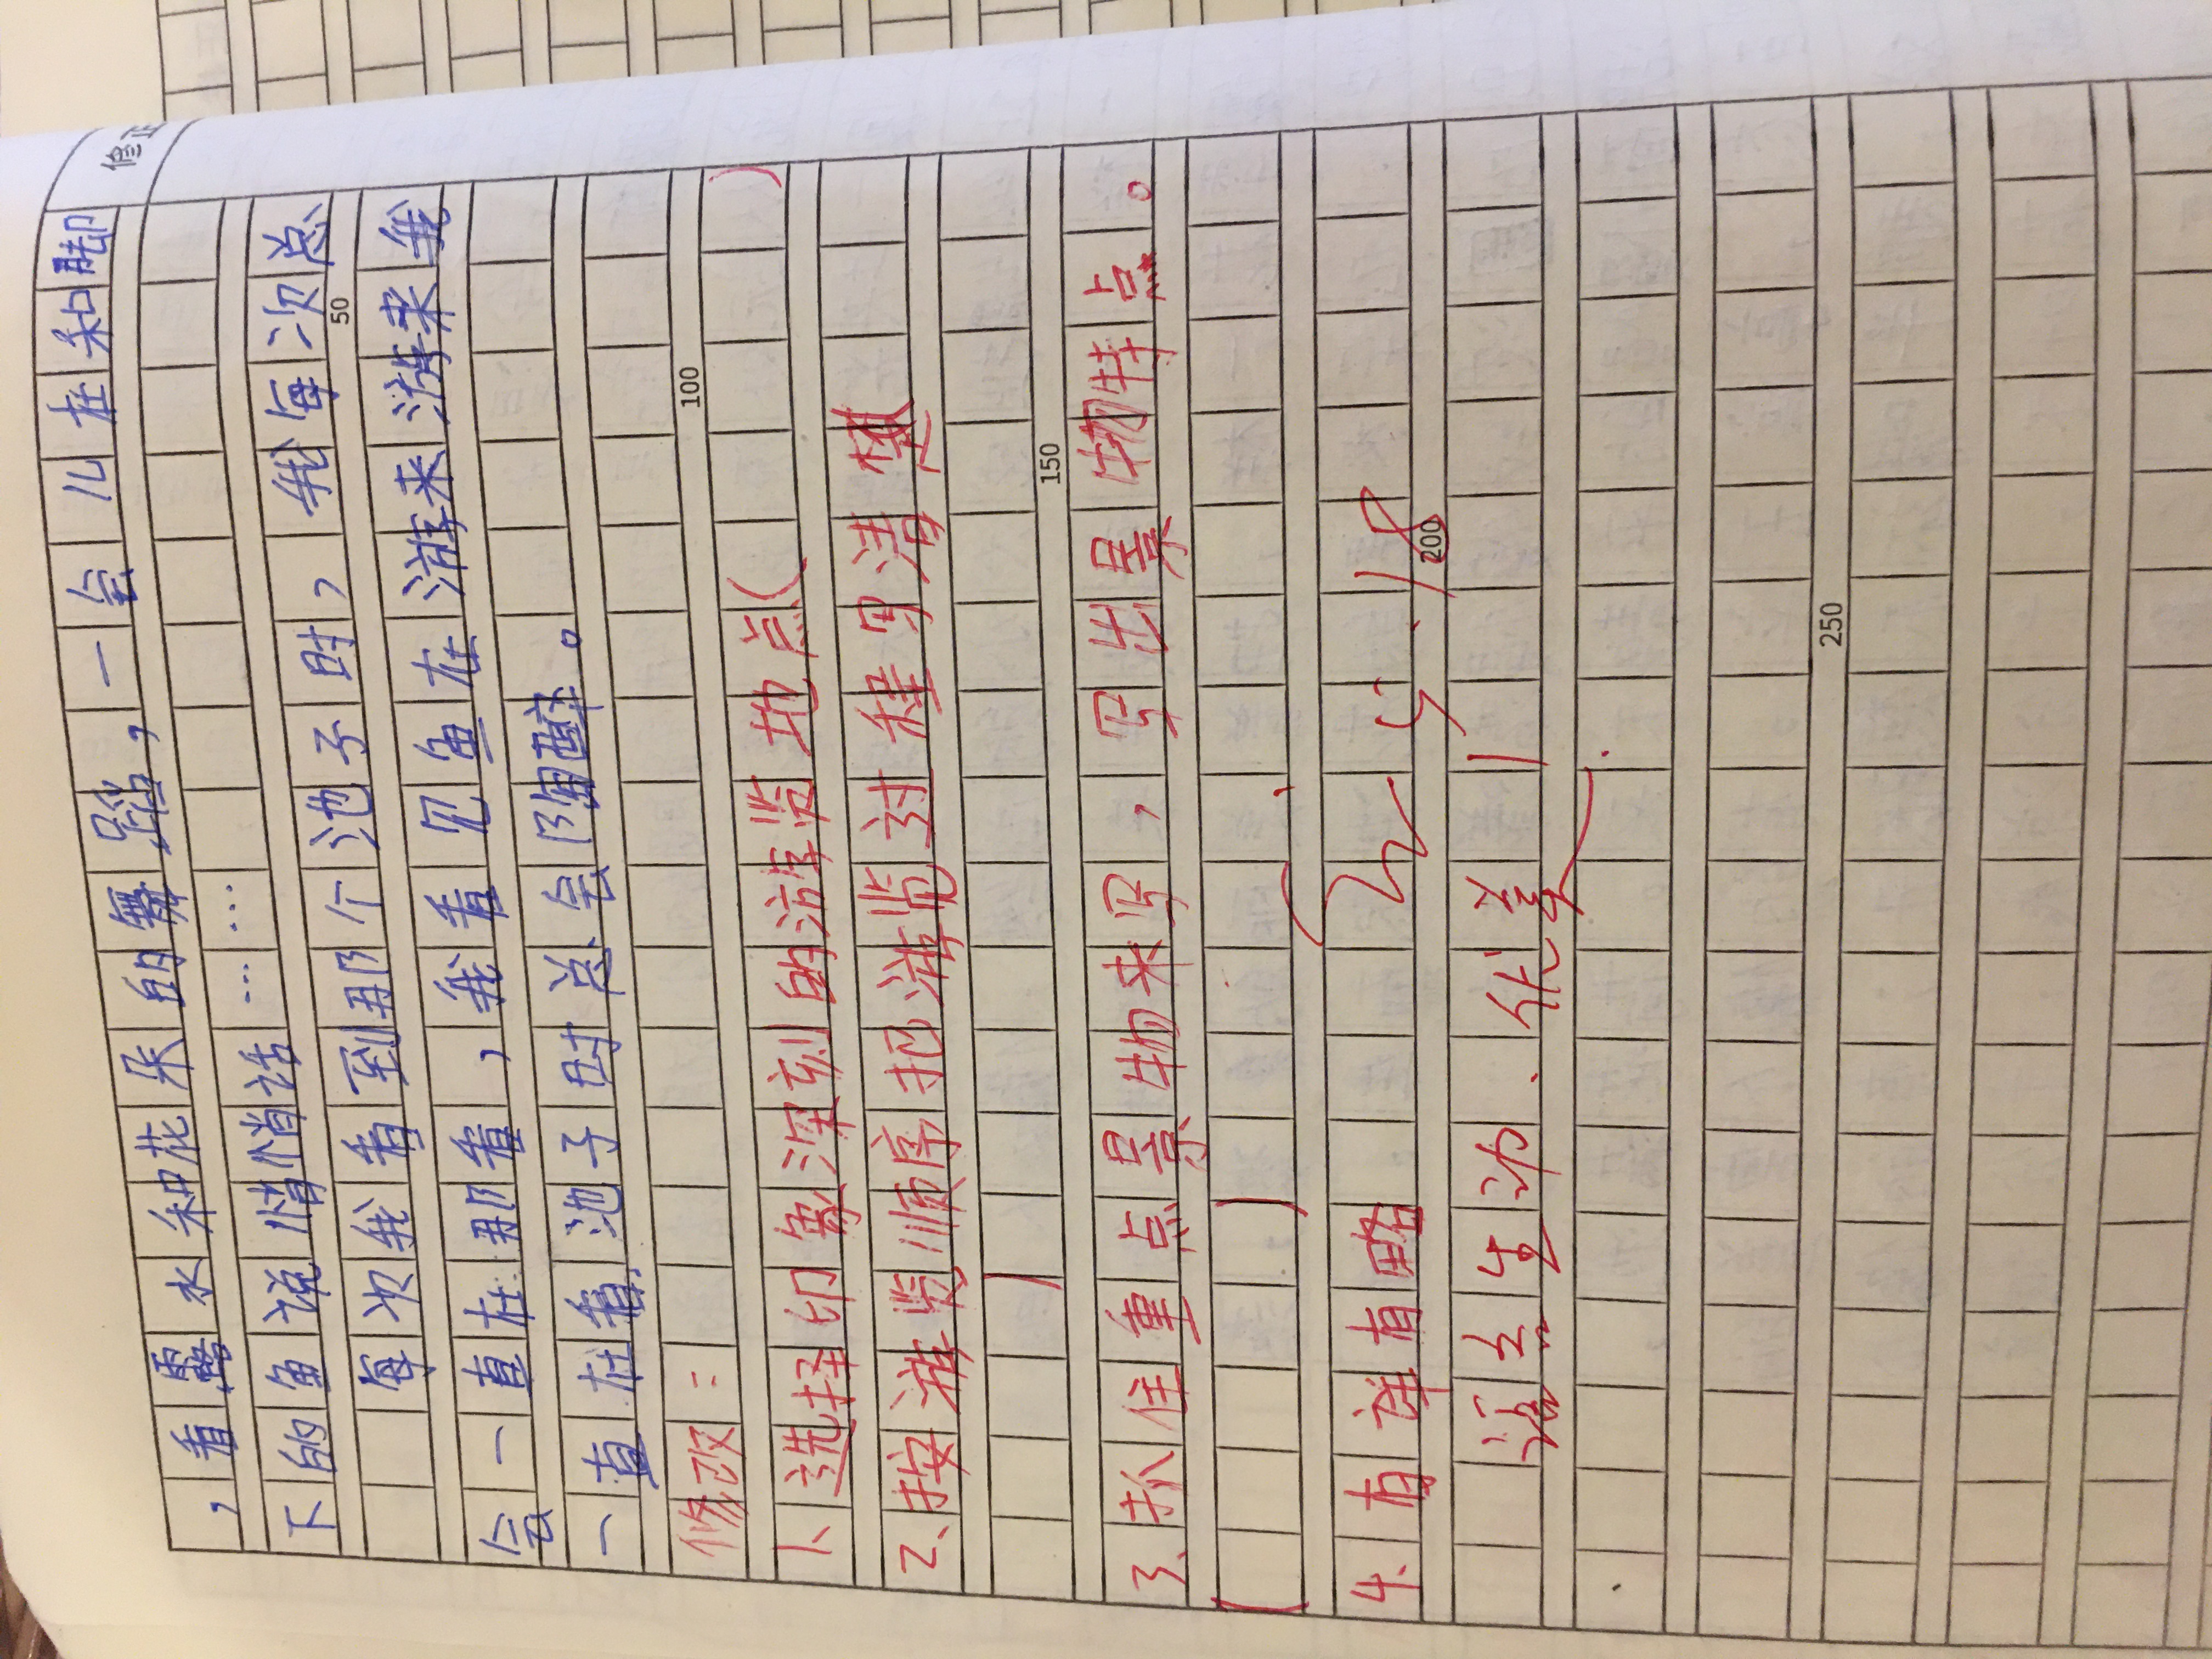 修正
，看露水和花朵的舞蹈，一会儿在和脚
下的鱼说悄悄话……
每次我看到那个池子时，我每次总
会一直在那看，我看见鱼在游来游来我
一直在看池子时总会陶醉。
50
修改：
100
1、选择印象深刻的游览地点（ ）
2、按游览顺序把游览过程写清楚
（ ）
150
3、抓住重点景物来写，写出景物特点。
（ ）
4、有详有略
200
语言生动、优美
5.18
250